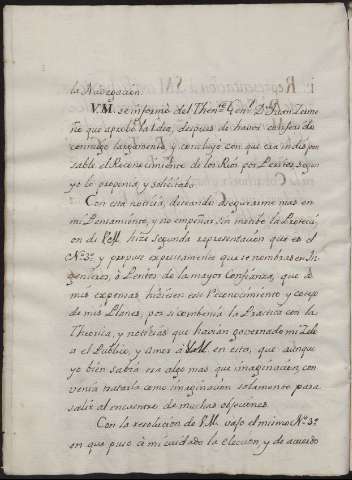 la Navegacion.
V.M. se informó del Thente Genl Dn Juan
ño que aprobó la Idea, despues de haver conferido
conmigo largamente, y concluyó con que era indispen
sable el Reconocimiento de los Rios por Peritos, segun
yo lo proponia, y solicitaba.
Con esta noticia, deseando asegurarme mas en
mi Pensamiento, y no empeñar sin motibo la Protecci
on de V.M. hize segunda representacion que es el
N.º 3.º y propuse expresamente que se nombrasen In
genieros, ò Peritos de la mayor Confianza, que à
mis expensas hiciesen este Reconocimiento y cotejo
de mis Planes, por si combenia la Practica con la
Theorica, y noticias que havian governado mi Zelo
a el Publico, y Amor à V.M. en esto, que aunque
yo bien sabia era algo mas que imaginacion, con
venia tratarla como imaginacion solamente para
salir al encuentro de muchas obgeciones.
Con la resolucion de V.M. vajo el mismo N.º 3.º
en que puso à mi cuidado la eleccion, y de acuerdo